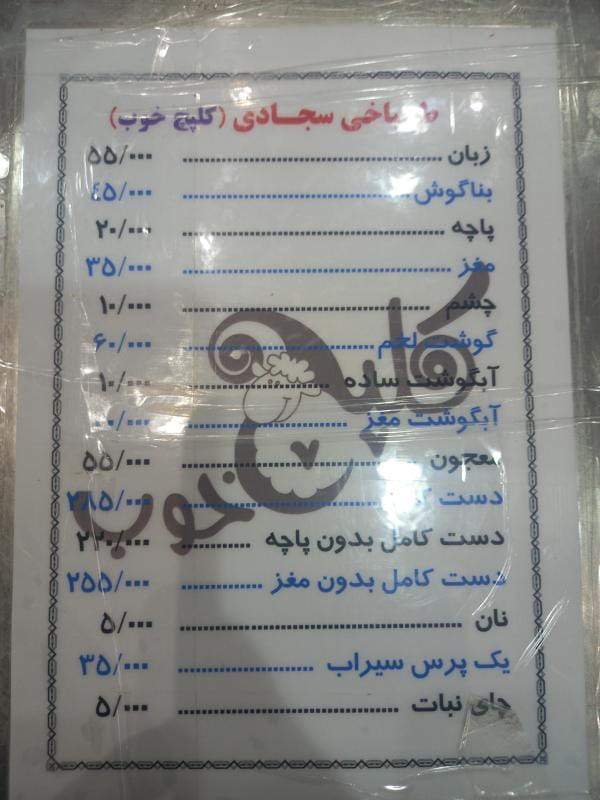 طباخی سجادی (کلپچ خوب)
زبان ........ ۵۵/۰۰۰
بناگوش ........ ٤۵/۰۰۰
پاچه ........ ۲۰/۰۰۰
مغز ........ ۳۵/۰۰۰
چشم ........ ۱۰/۰۰۰
گوشت لخم ........ ۶۰/۰۰۰
آبگوشت ساده ........ ۱۰/۰۰۰
آبگوشت مغز ........
معجون ........ ۵۵/۰۰۰
دست کامل ........ ۲۸۵/۰۰۰
دست کامل بدون پاچه ........ ۲۲۰/۰۰۰
دست کامل بدون مغز ........ ۲۵۵/۰۰۰
نان ........ ۵/۰۰۰
یک پرس سیراب ........ ۳۵/۰۰۰
چای نبات ........ ۵/۰۰۰
کلپچ خوب